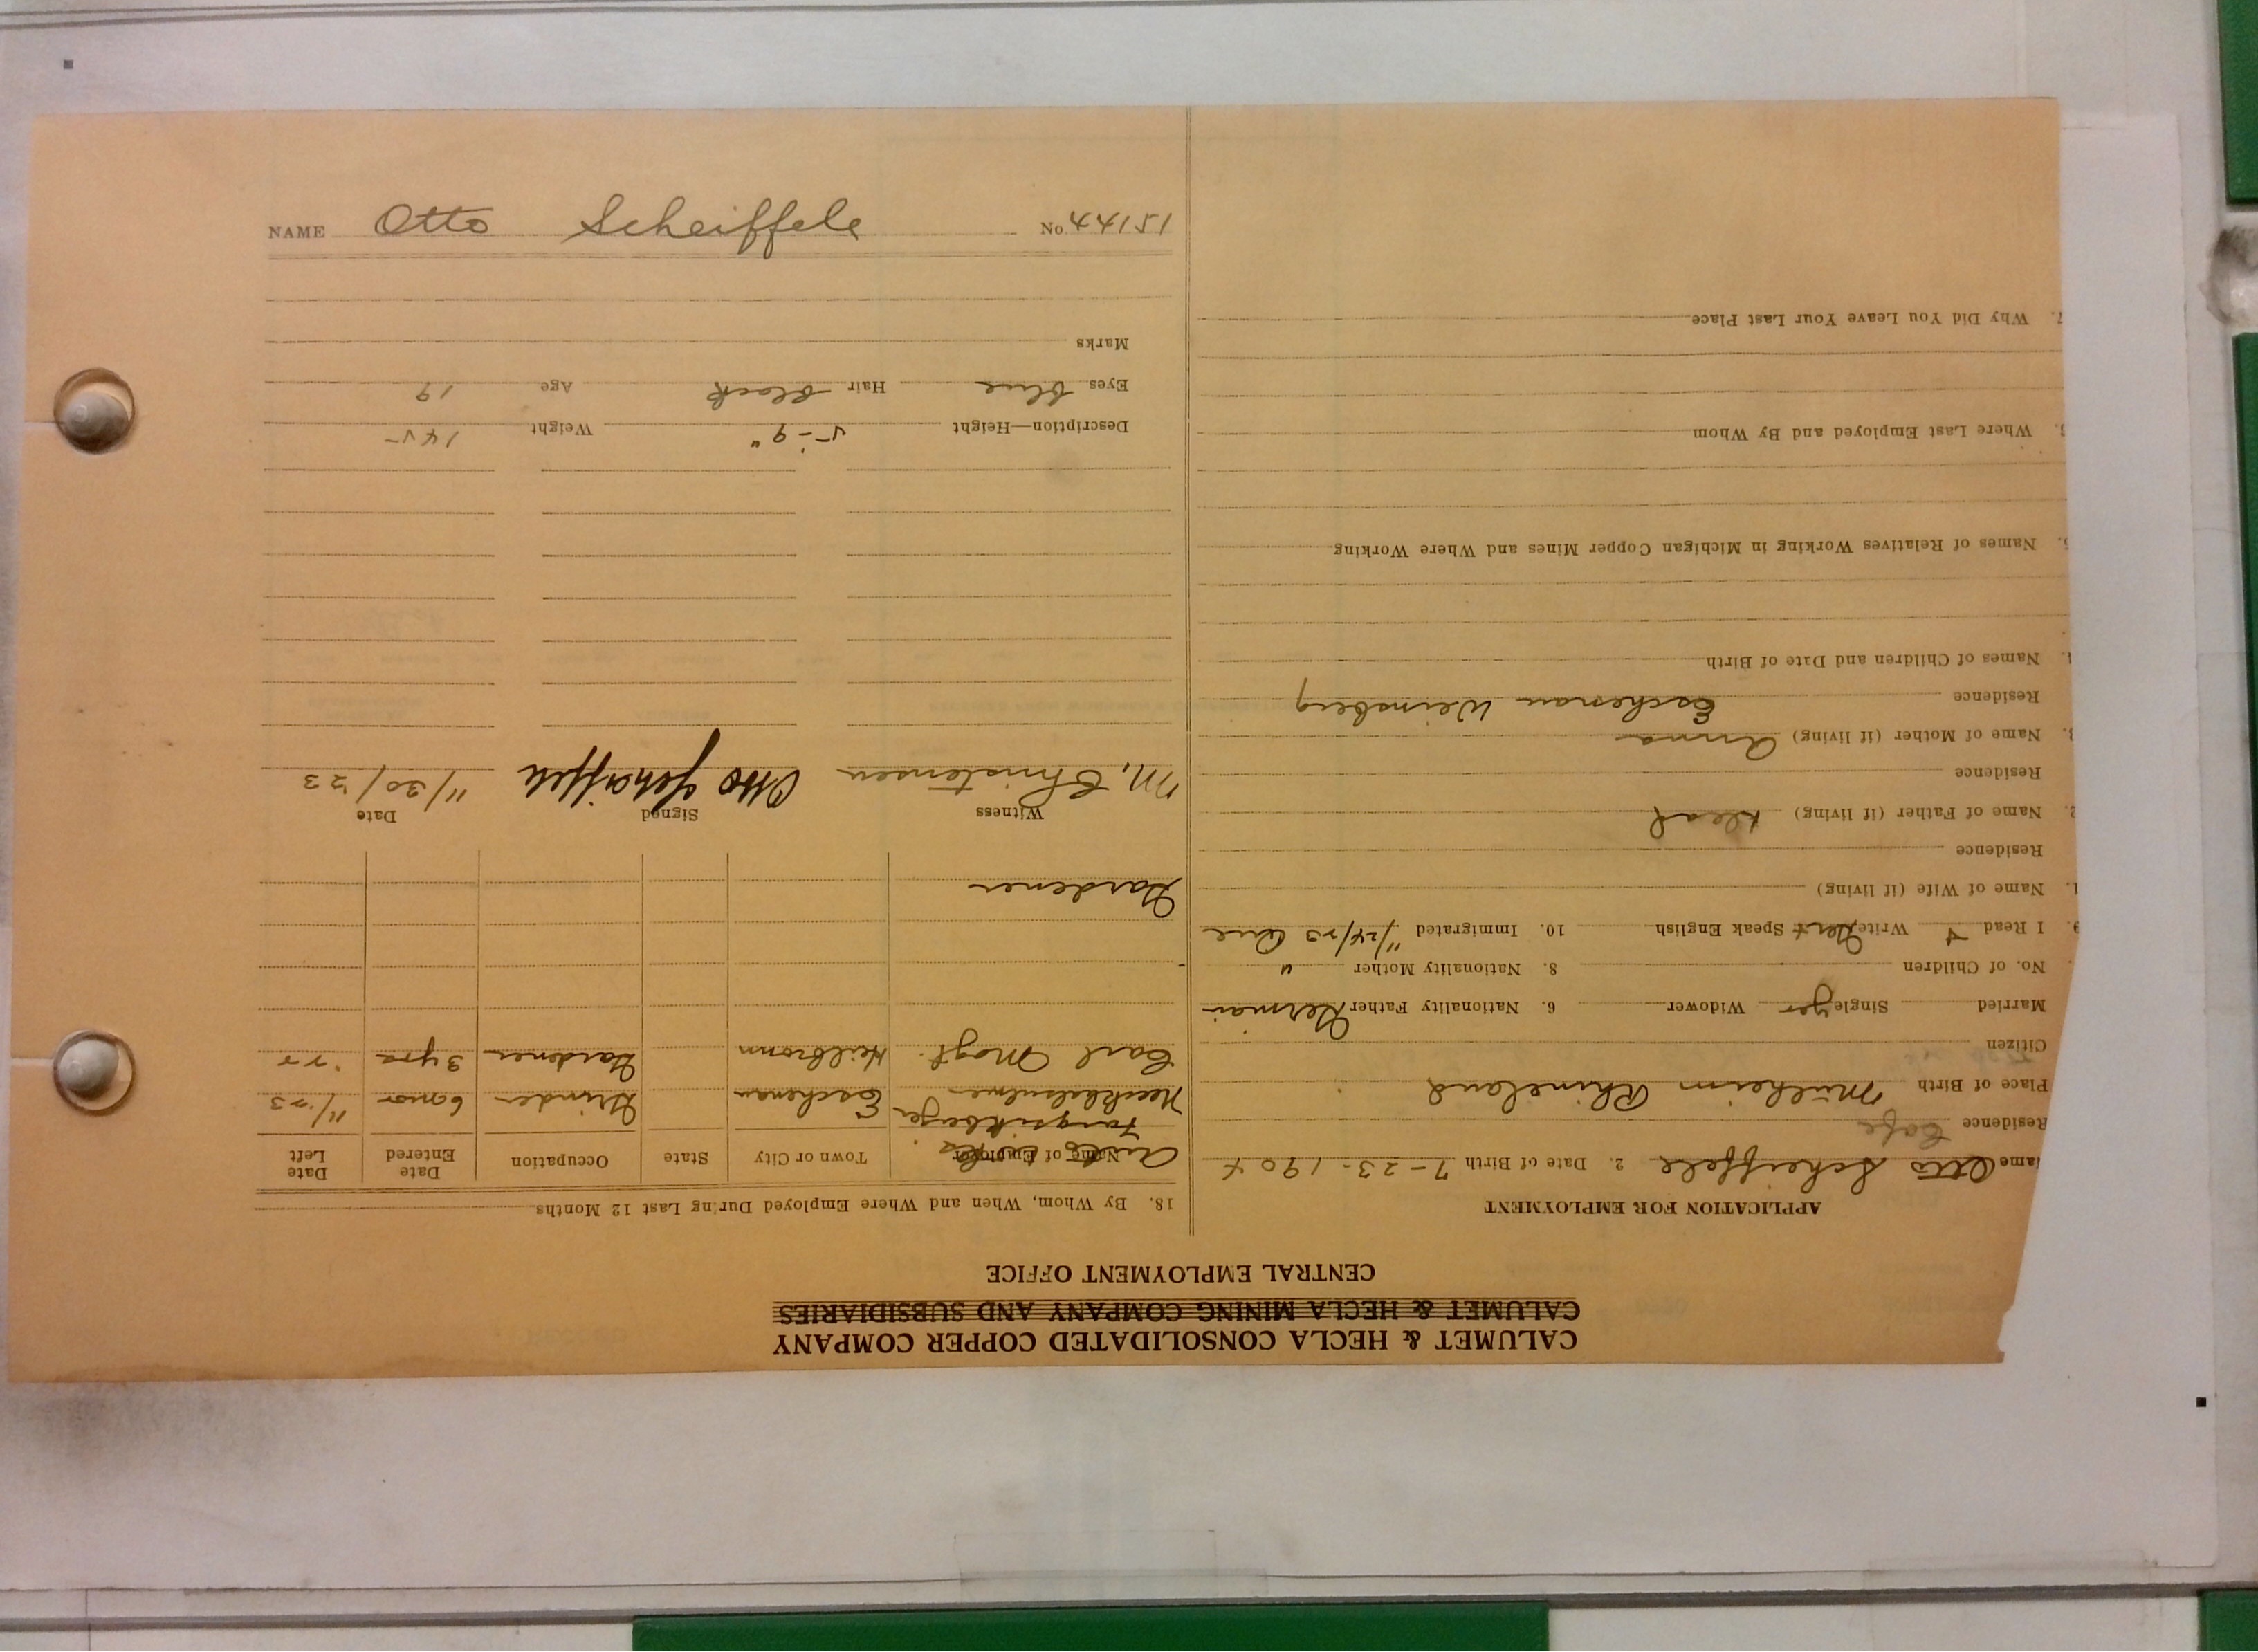 CALUMET & HECLA CONSOLIDATED COPPER COMPANY
CALUMET & HECLA MINING COMPANY AND SUBSIDIARIES
CENTRAL EMPLOYMENT OFFICE
APPLICATION FOR EMPLOYMENT
ame Otto Scheiffele 2. Date of Birth 7-23-1904
Residence
Place of Birth Mülheim Rhineland
Citizen
Married Single yes Widower 6. Nationality Father German
No. of Children 8. Nationality Mother "
9. I Read Write Speak English 10. Immigrated 11/24/23
1. Name of Wife (if living)
Residence
2. Name of Father (if living) dead
Residence
3. Name of Mother (if living) Anna
Residence Eschenau Weinsberg
4. Names of Children and Date of Birth
5. Names of Relatives Working in Michigan Copper Mines and Where Working
6. Where Last Employed and By Whom
7. Why Did You Leave Your Last Place
18. By Whom, When and Where Employed During Last 12 Months
Name of Employer Town or City State Occupation Date Entered Date Left
Eschenau Grinder 6 mos 11/23
Carl Heilbronn Gardener 3 yrs
Gardener
Witness Signed Date
M. Christensen Otto Scheiffele 11/30/23
Description—Height 5'-9" Weight 145
Eyes blue Hair black Age 19
Marks
NAME Otto Scheiffele No. 15144